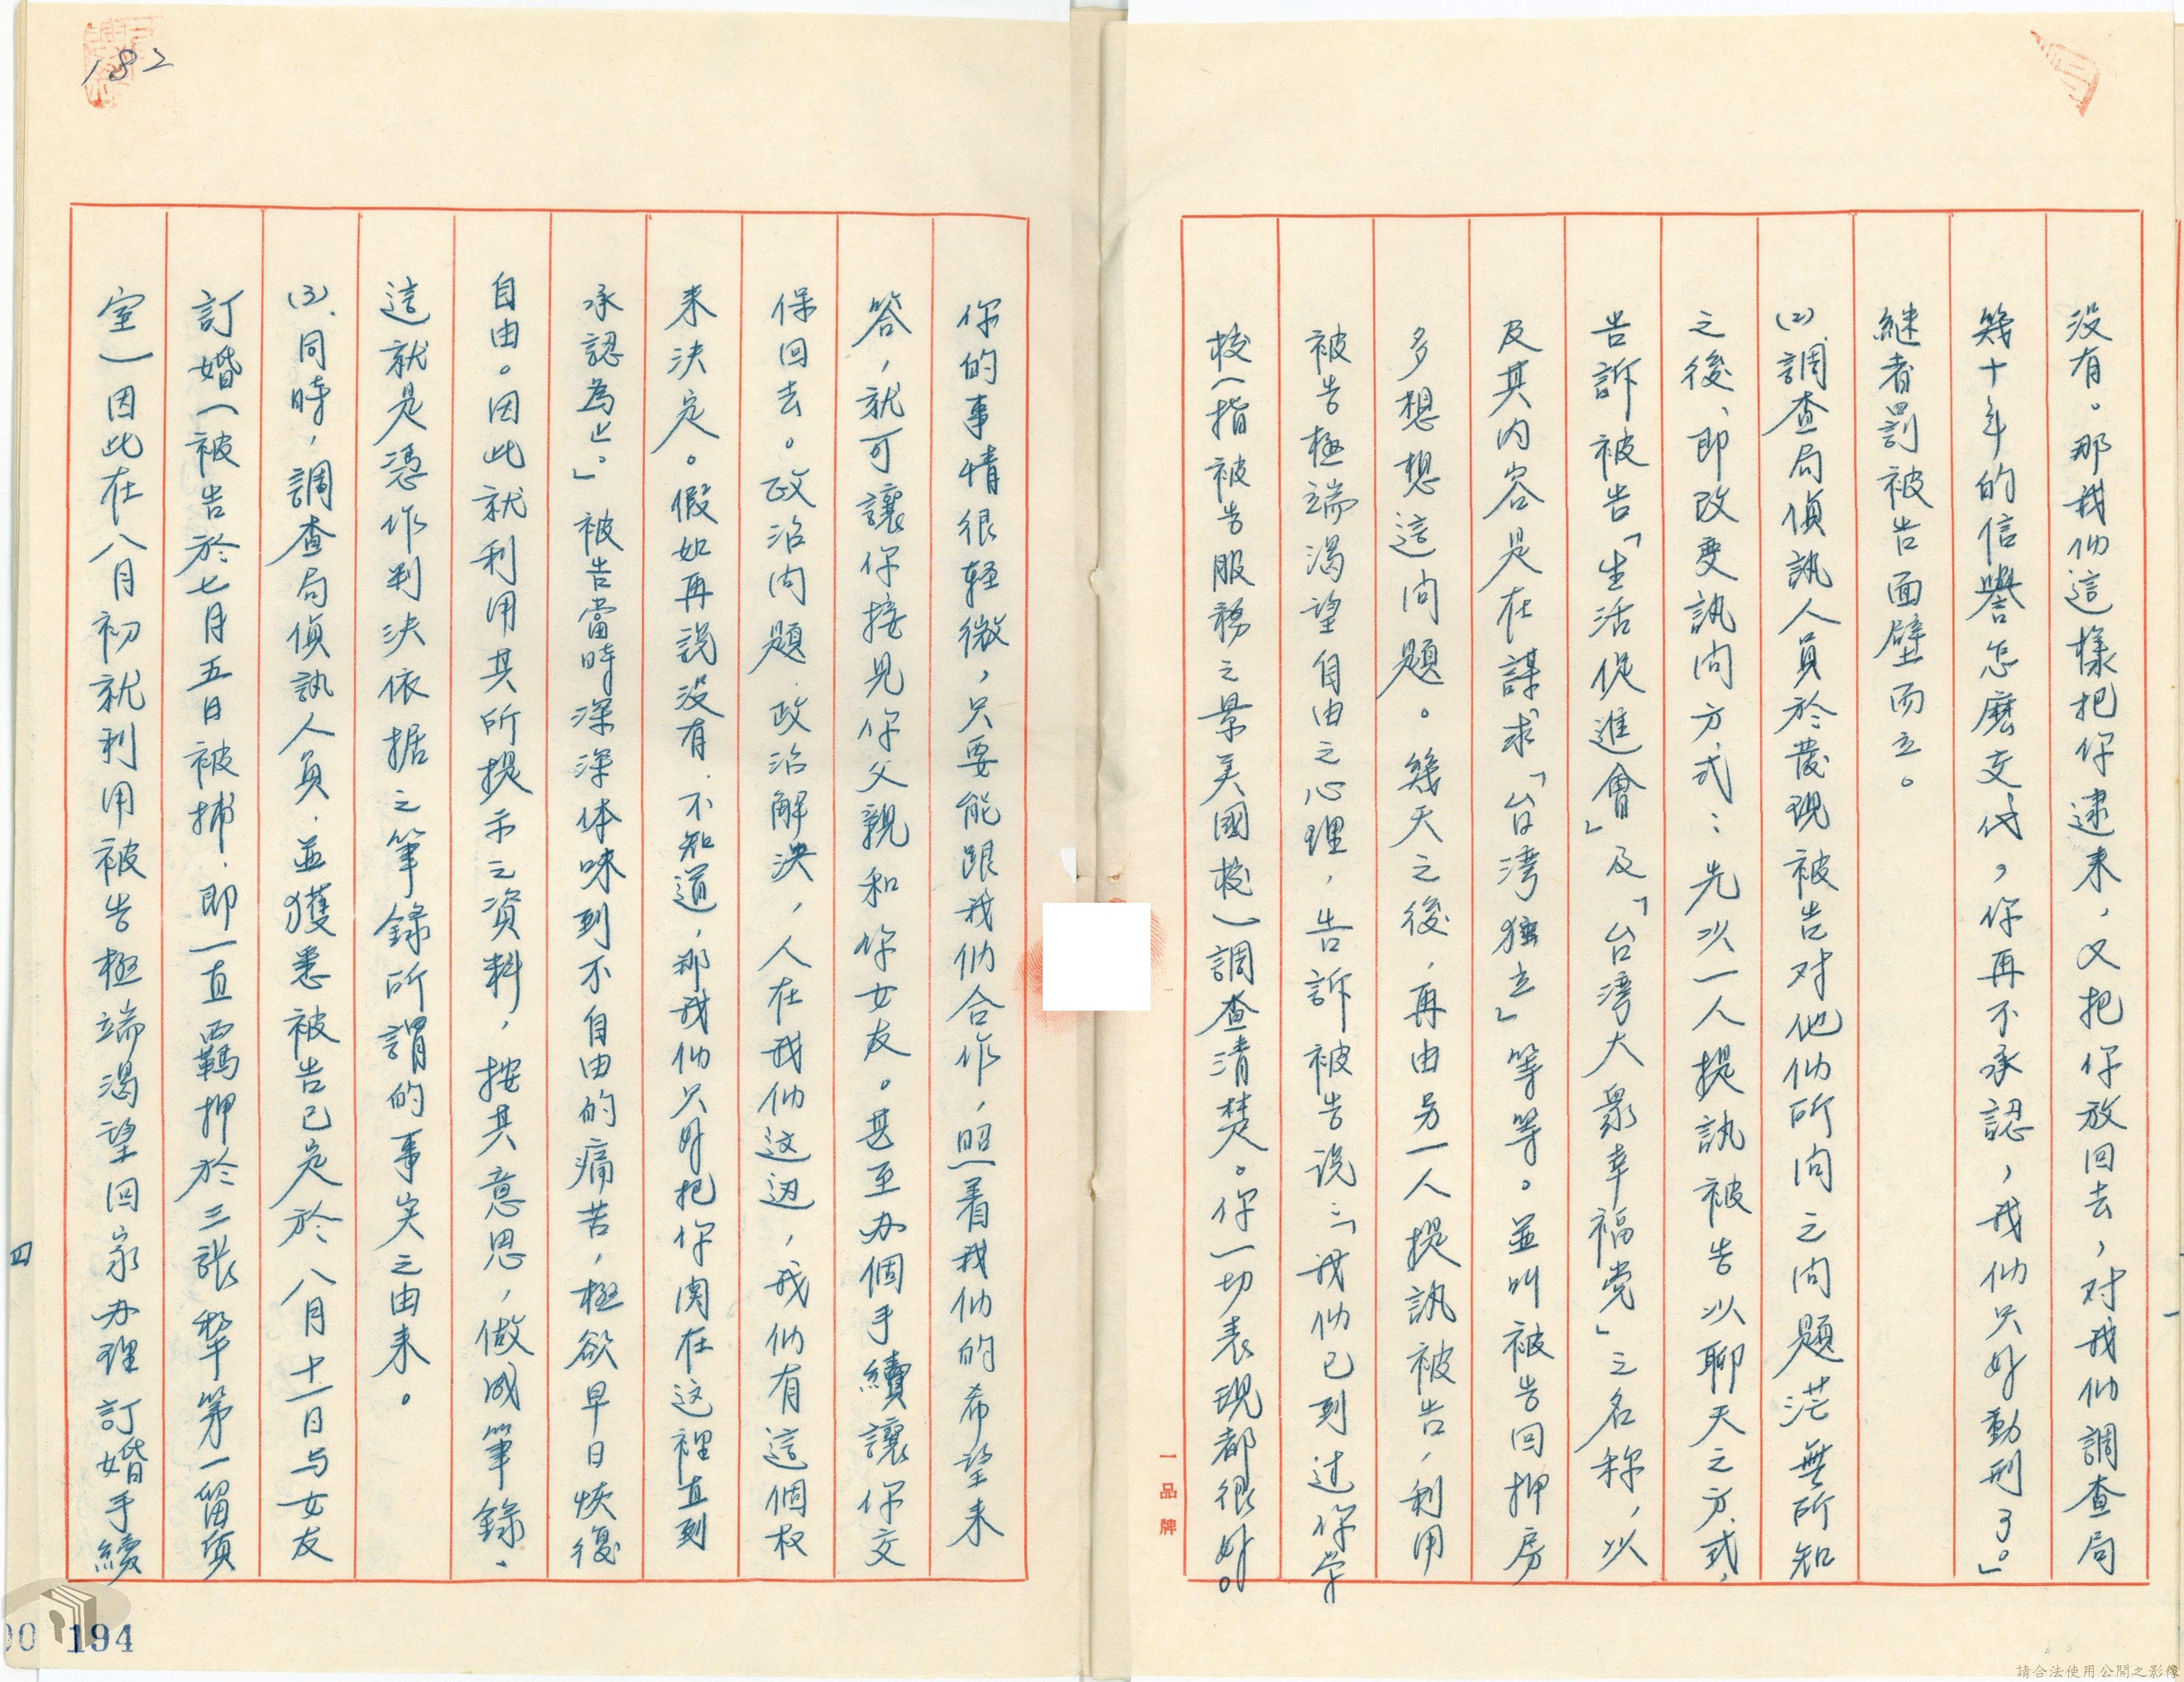 没有。那我们這樣把你逮来，又把你放回去，对我们調查局
幾十年的信譽怎麽交代，你再不承認，我们只好動刑了。」
継者罰被告面壁而立。
(2)、調查局偵訊人員於發現被告对他们所问之问題茫無所知
之後、即改变訊问方式：先以一人提訊被告以聊天之方式，
告訴被告「生活促進會」及「台湾大衆幸福党」之名称，以
及其内容是在謀求「台湾独立」等等。並叫被告回押房
多想想這问題。幾天之後，再由另一人提訊被告，利用
被告極端渴望自由之心理，告訴被告説：「我们已到过你学
校（指被告服務之景美國校）調查清楚。你一切表現都很好。
一品牌
你的事情很轻微，只要能跟我们合作，照着我们的希望来
答，就可讓你接見你父親和你女友。甚至办個手續讓你交
保回去。政治问題政治解決，人在我们这边，我们有這個权
来決定。假如再説没有，不知道，那我们只好把你関在这裡直到
承認為止。」被告當時深深体味到不自由的痛苦，極欲早日恢復
自由。因此就利用其所提示之資料，按其意思，做成筆錄，
這就是憑作判決依据之筆錄所謂的事实之由来。
(3)、同時，調查局偵訊人員，並獲悉被告已定於八月十一日与女友
訂婚（被告於七月五日被捕，即一直羈押於三張犂第一留質
室）因此在八月初就利用被告極端渴望回家办理訂婚手續
182
四
194
請合法使用公開之影像